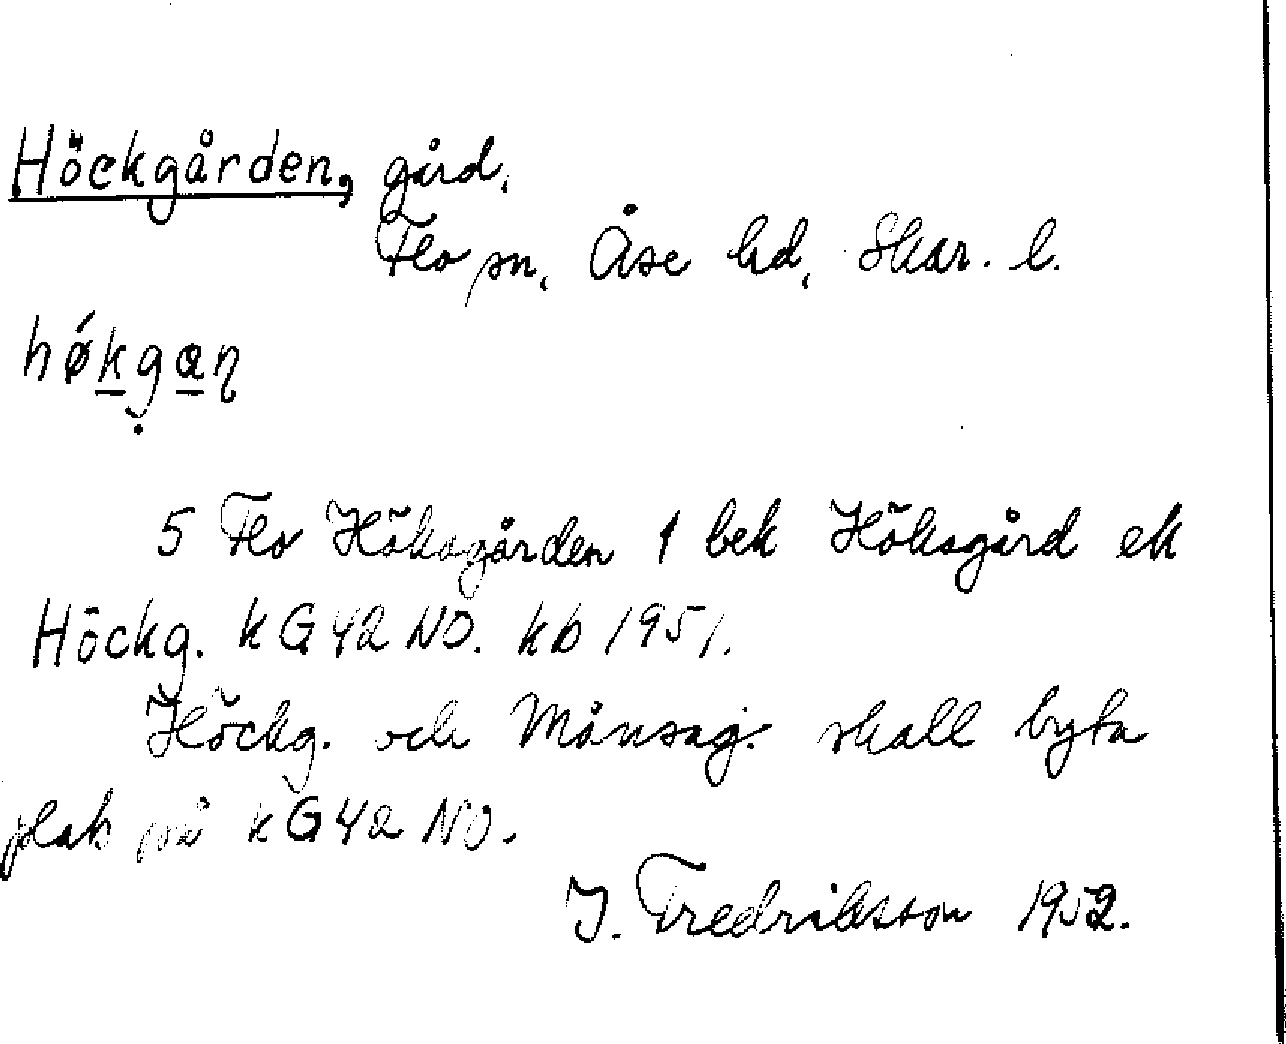 Höckgården, gård,
Flo sn, Åse hd, Skar. l.
hǿkgaɳ
5 Flo Höksgården 1 bek Höksgård ek
Höckg. kG42NO. kb 1951.
Höckg. och Månsag. skall byta
plats på kG42 NO.
J. Fredriksson 1952.